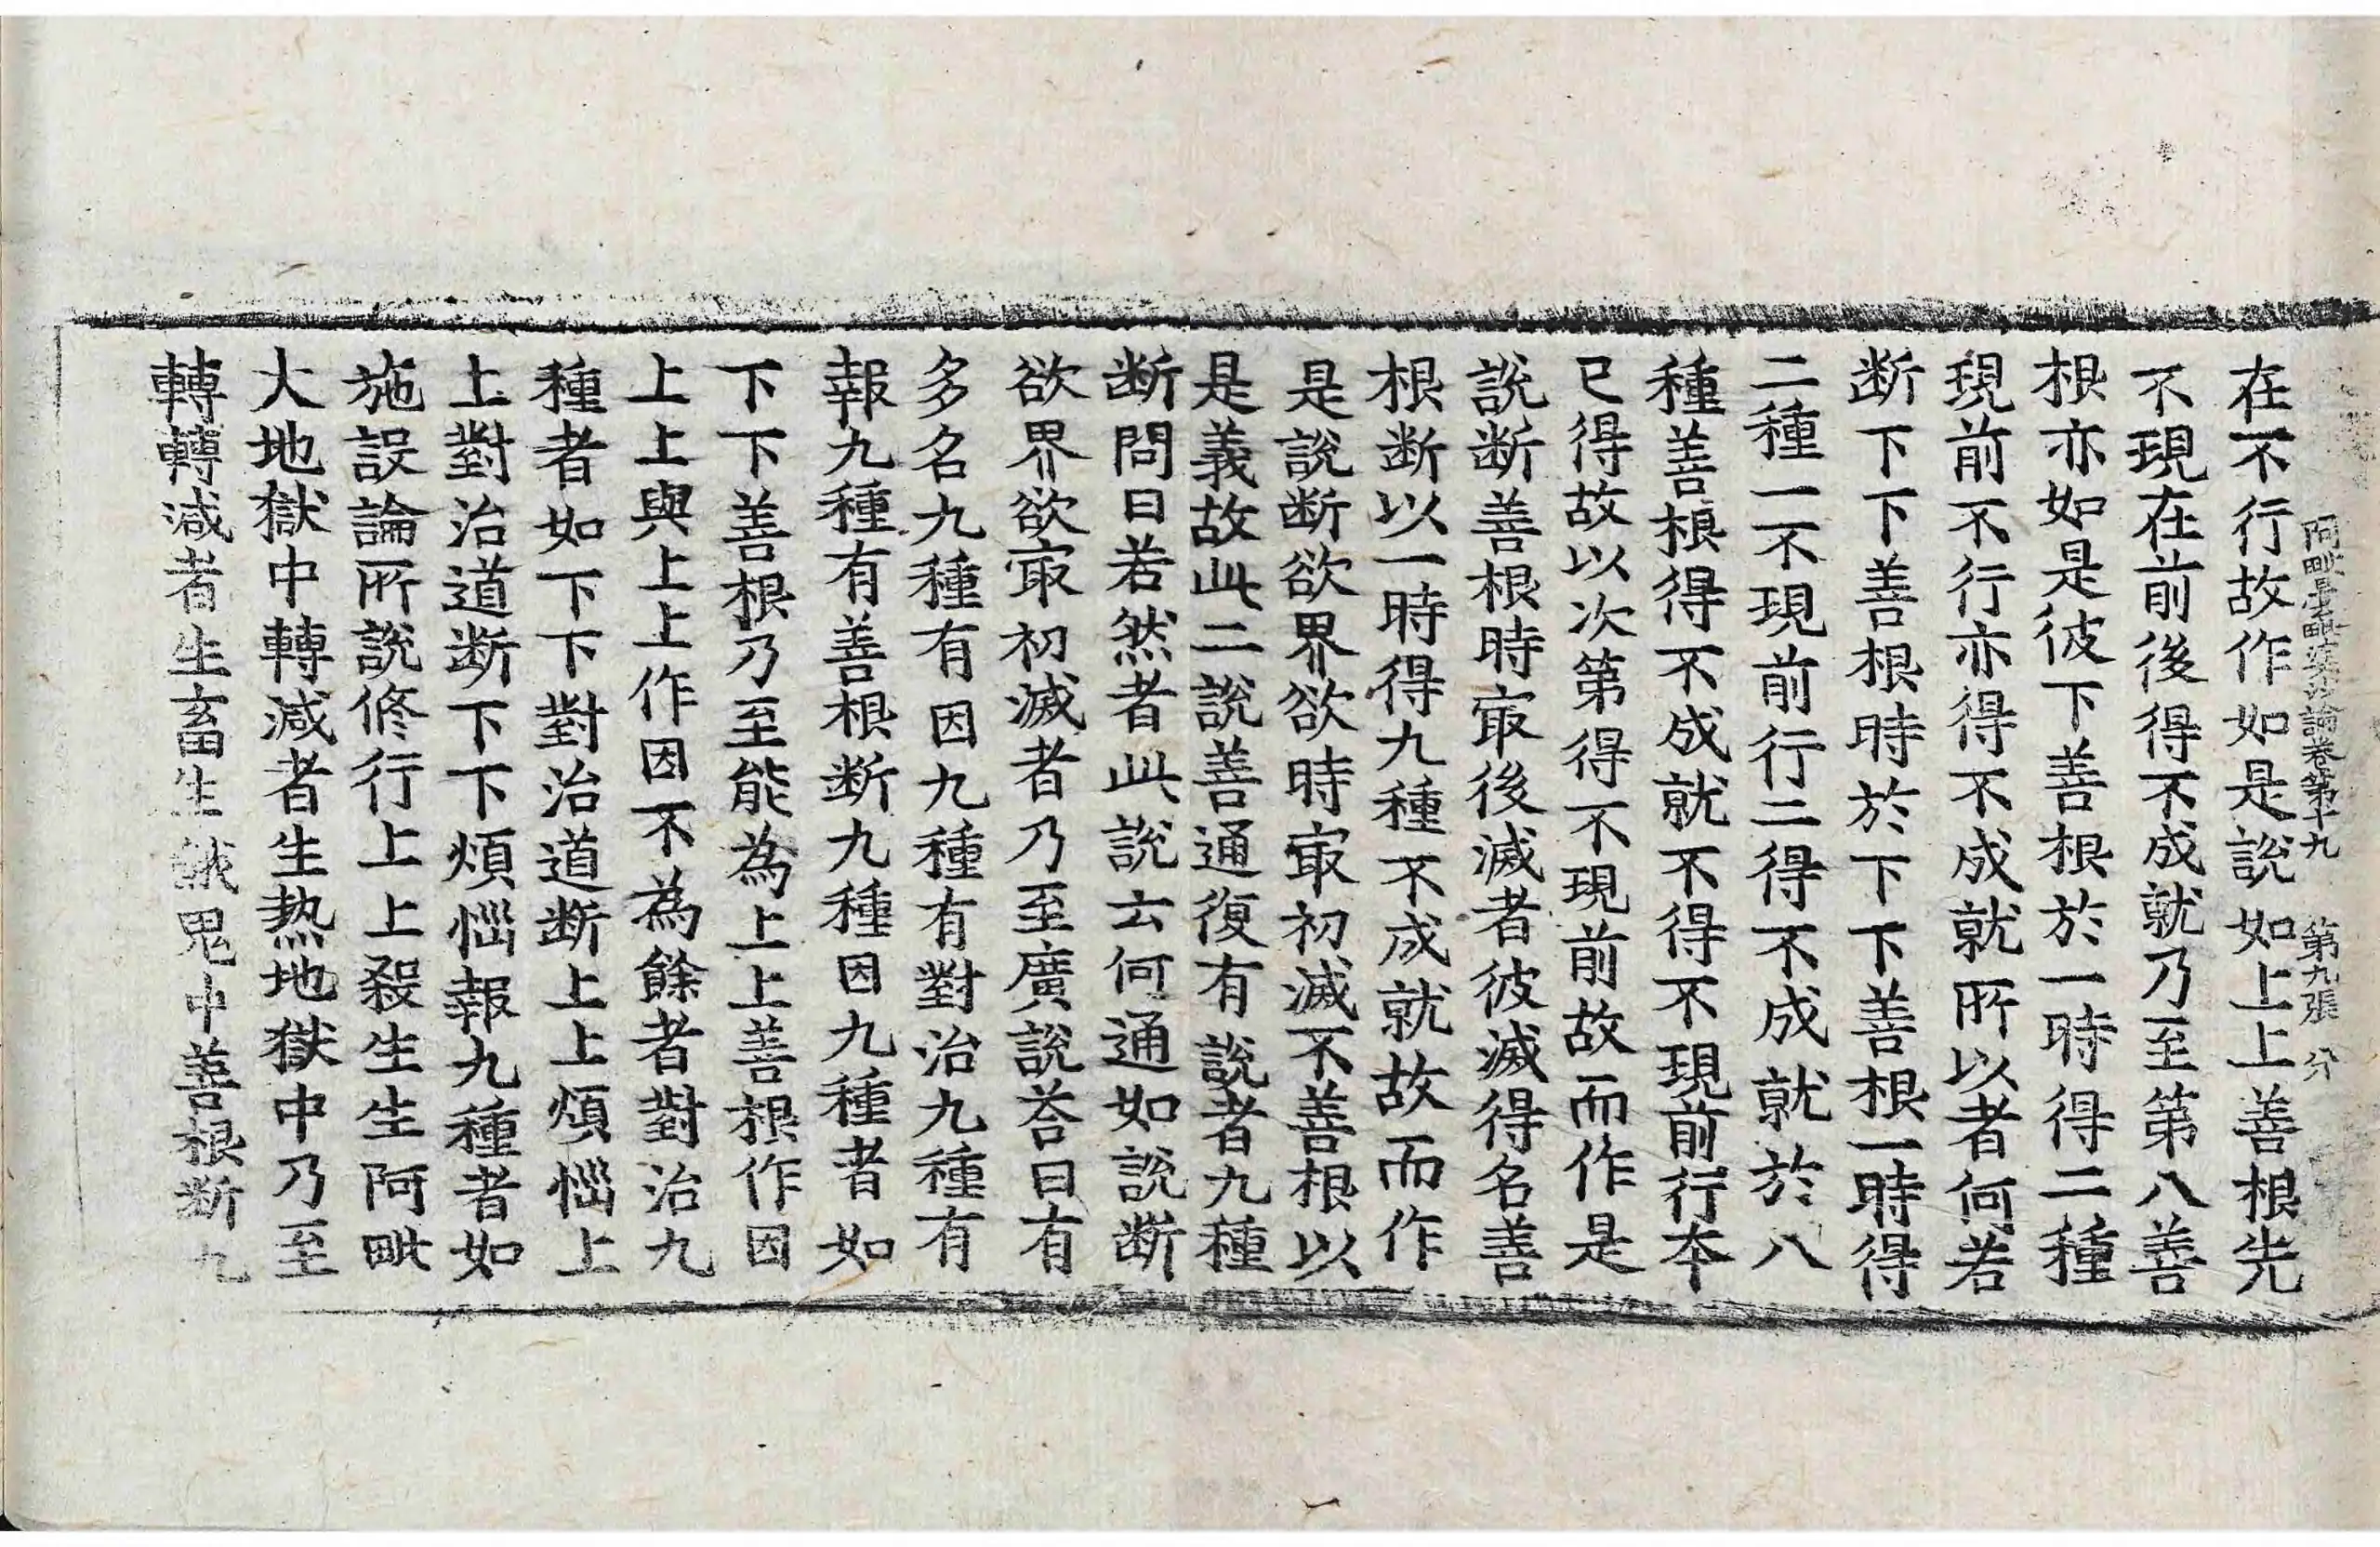 阿毗曇毗婆沙論卷第十九 第九張 分
在不行故作如是說如上上善根先
不現在前後得不成就乃至第八善
根亦如是彼下善根於一時得二種
現前不行亦得不成就所以者何若
断下下善根時於下下善根一時得
二種一不現前行二得不成就於八
種善根得不成就不得不現前行本
已得故以次第得不現前故而作是
說断善根時㝡後滅者彼滅得名善
根断以一時得九種不成就故而作
是說断欲界欲時㝡初滅不善根以
是義故此二說善通復有說者九種
断問曰若然者此說云何通如說断
欲界欲㝡初滅者乃至廣說荅曰有
多名九種有因九種有對治九種有
報九種有善根断九種因九種者如
下下善根乃至能為上上善根作因
上上與上上作因不為餘者對治九
種者如下下對治道断上上煩惱上
上對治道断下下煩惱報九種者如
施設論所說修行上上殺生生阿毗
大地獄中轉減者生热地獄中乃至
轉轉減者生畜生餓鬼中善根断九